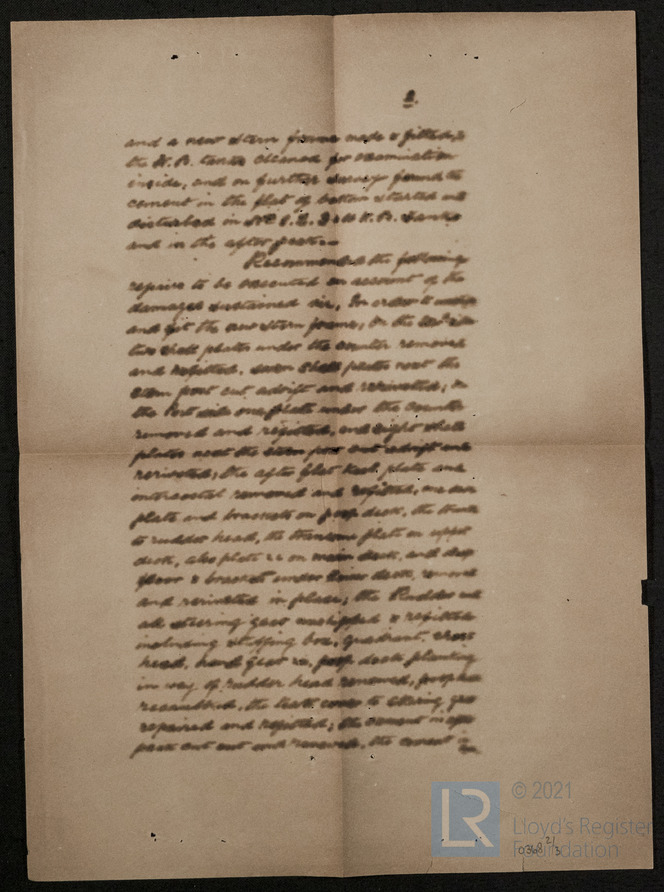 2.
and a new stern frame made & fitted,
the W.B. tanks cleaned for examination
inside, and on further survey found the
cement in the flat of bottom started and
disturbed in Nos 1. 2. 3 W.B. tanks
and in the after peak.
Recommended the following
repairs to be executed on account of the
damages sustained viz, In order to
and get the new stern frame, On the side
two shell plates under the counter removed
and refitted, seven shell plates next the
stern post cut adrift and reriveted; on
the Port side one plate under the counter
removed and refitted, and eight shell
plates next the stern post cut adrift and
reriveted; the after flat keel plate and
intercostal removed and refitted, one
plate and brackets on poop deck, the trunk
to rudder head, the transome plate on upper
deck, also plate on main deck, and deep
floor & bracket under lower deck, removed
and reriveted in place; the Rudder and
all steering gear unshipped & refitted
including stuffing box, quadrant, cross
head, hand gear &c, poop deck planking
in way of rudder head renewed,
recaulked, the teak cover to steering gear
repaired and refitted; the cement in after
peak cut out and renewed, the cement in
© 2021
LR
Lloyd's Register
Foundation
0368 2/3